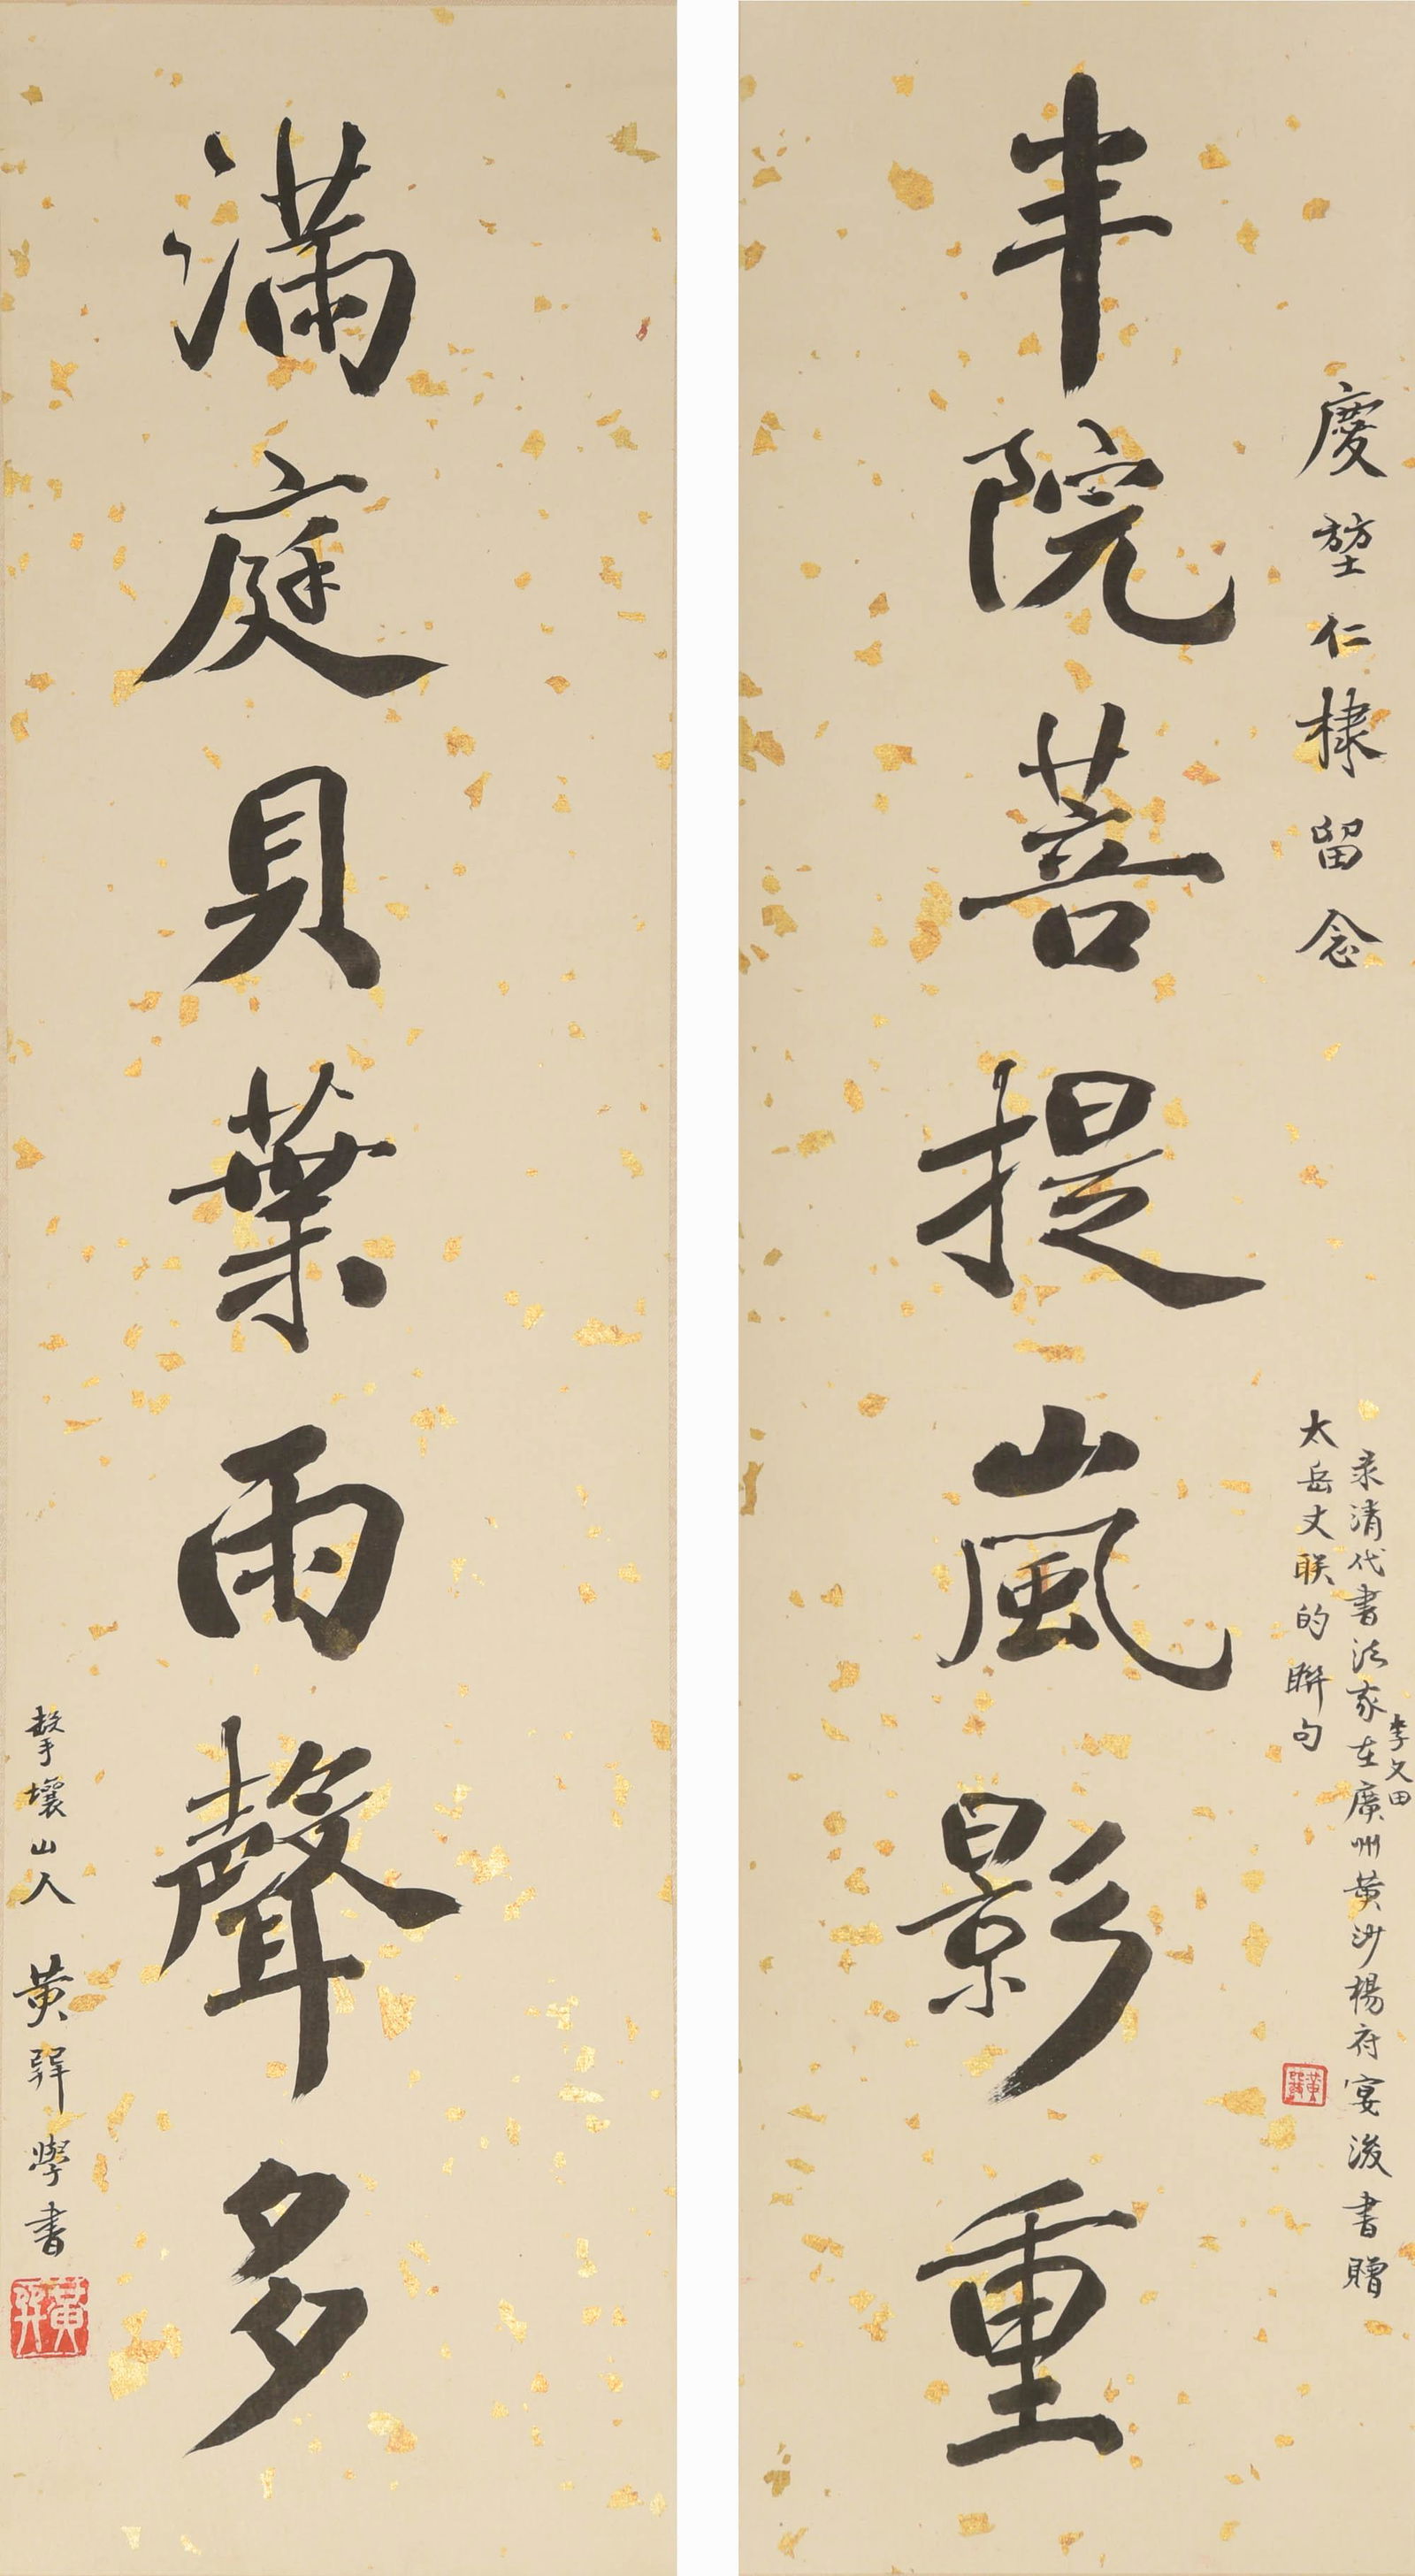 慶堃仁棣留念
录清代書法家李文田在廣州黄沙楊府宴後書贈
太岳丈联的聯句
黄巽
半院菩提嵐影重
滿庭貝葉雨聲多
擊壤山人 黄巽學書
黄巽